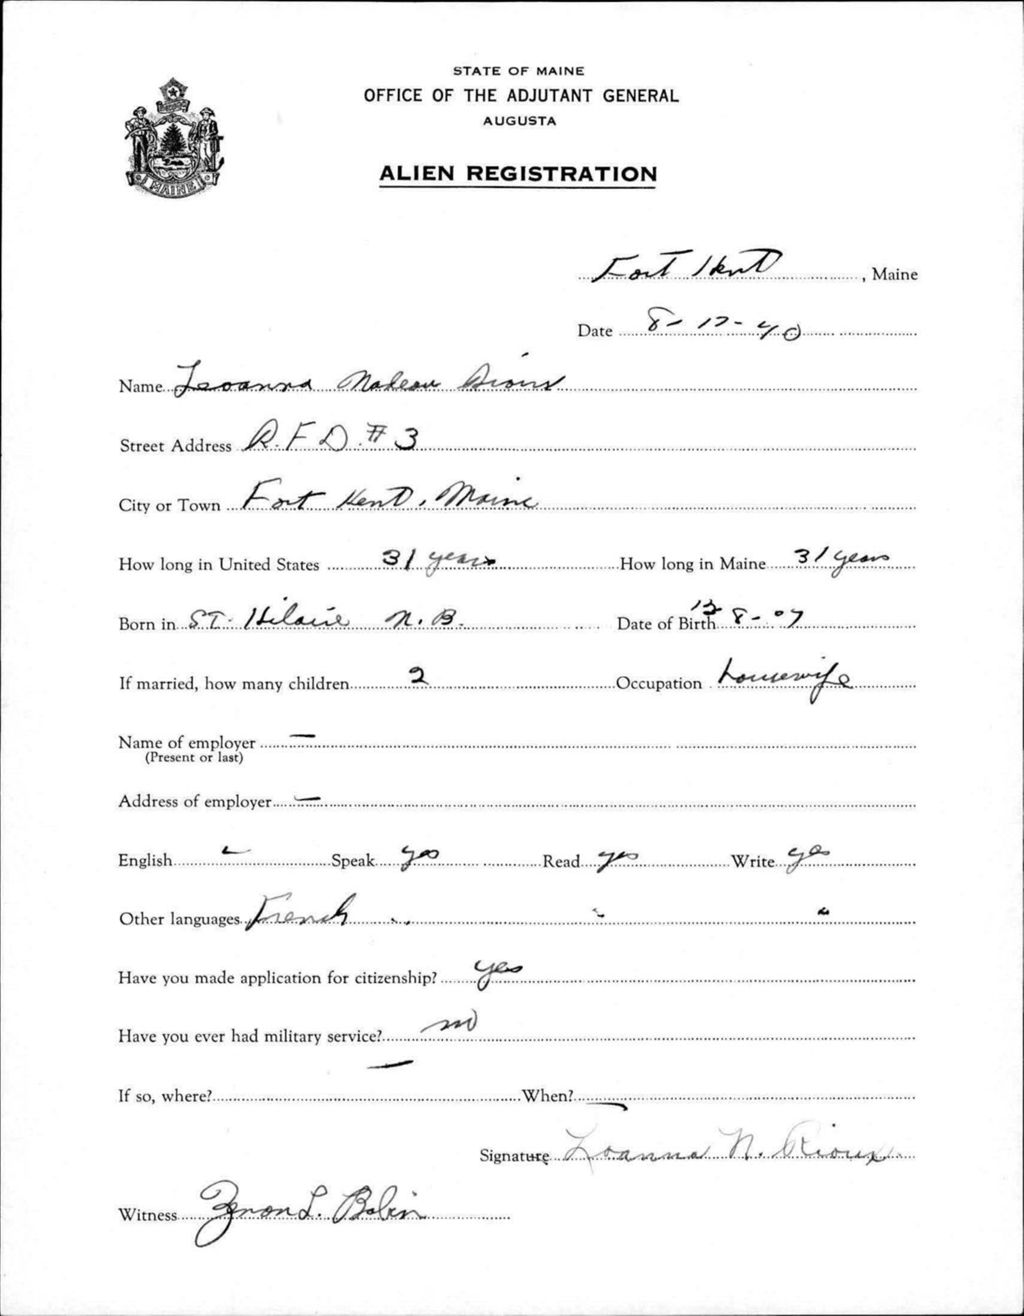 STATE OF MAINE
OFFICE OF THE ADJUTANT GENERAL
AUGUSTA
ALIEN REGISTRATION
MAINE
Fort Kent, Maine
Date 8-17-40
Name Leoanna Nadeau Rioux
Street Address R.F.D. #3
City or Town Fort Kent, Maine
How long in United States 31 years How long in Maine 31 years
Born in ST. Hilaire N.B. Date of Birth 12-8-07
If married, how many children 2 Occupation housewife
Name of employer —
(Present or last)
Address of employer —
English Speak yes Read yes Write yes
Other languages French " " "
Have you made application for citizenship? yes
Have you ever had military service? no
If so, where? — When? —
Signature Loanna N. Rioux
Witness Zenon L.